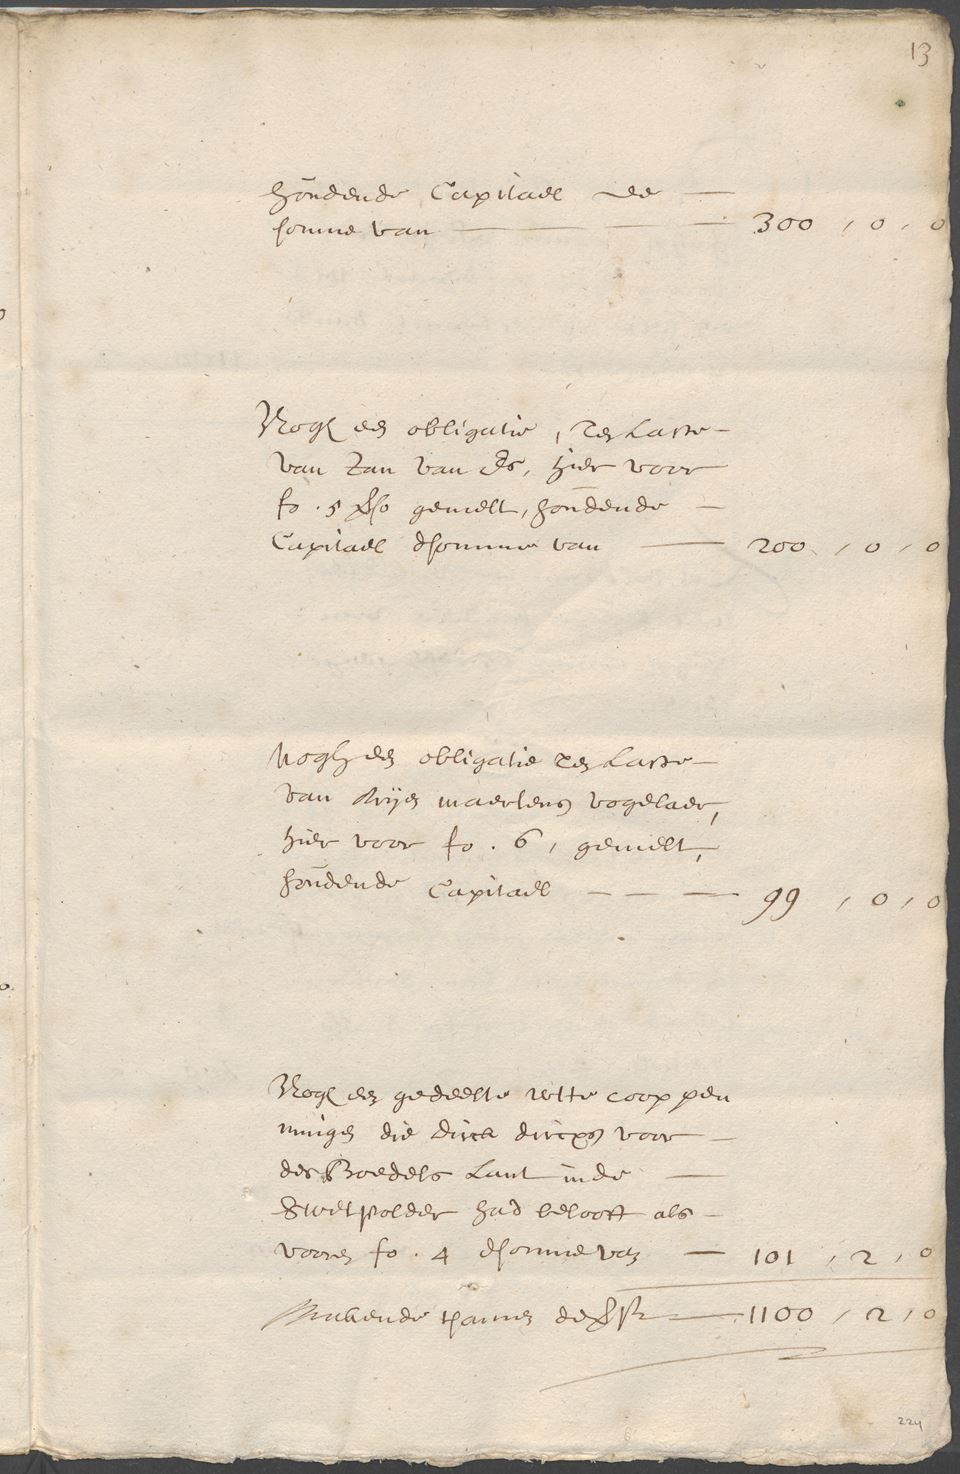 13
houdende Capitael de —
somme van — — — 300 , 0 , 0
Noch een obligatie , ten Laste —
van Jan van Es, hier voor
fo . 5 gemelt, houdende —
Capitael dsomme van — 200 , 0 , 0
Nogh een obligatie ten Laste —
van maertens vogelaer,
hier voor fo . 6 , gemelt,
houdende Capitael — — — 99 , 0 , 0
Noch een gedeelte uytte coop pen
ningen die Dirck Dircxs voor —
des Boedels Lant inde —
Swetpolder had belooft als —
vooren fo . 4 dsomme van — 101 , 2 , 0
Maeckende tsamen de — 1100 , 2 , 0
224